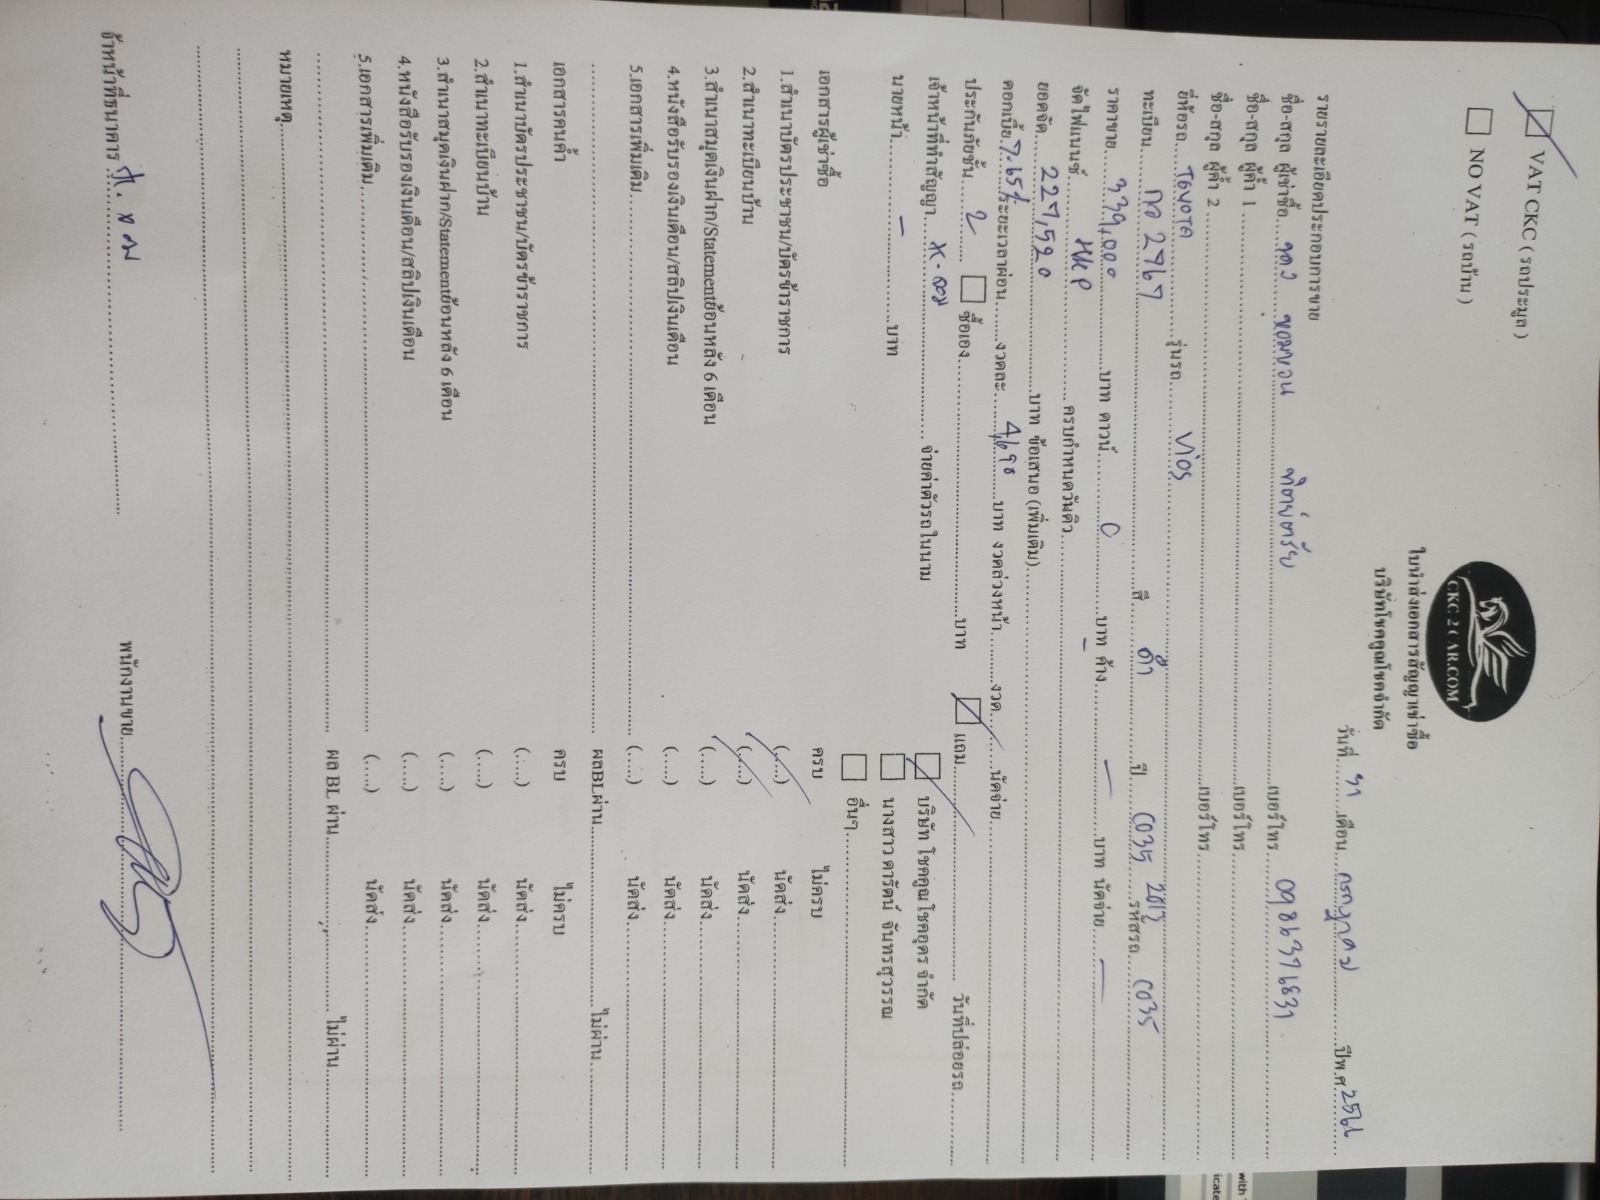 VAT CKC ( รถประมูล )
NO VAT ( รถบ้าน )
CKC 2 CAR.COM
ใบนำส่งเอกสารสัญญาเช่าซื้อ
บริษัทโชคคูณโชคจำกัด
วันที่.........เดือน....กรกฎาคม..........ปีพ.ศ.256
รายรายละเอียดประกอบการขาย
ชื่อ-สกุล ผู้เช่าซื้อ....................เบอร์โทร....0986376831
ชื่อ-สกุล ผู้ค้ำ 1....................เบอร์โทร....................
ชื่อ-สกุล ผู้ค้ำ 2....................เบอร์โทร....................
ยี่ห้อรถ....TOYOTA..........รุ่นรถ....VIOS
ทะเบียน....กอ 2767..........สี....ดำ..........ปี....รหัสรถ....C035
ราคาขาย....339,000..........บาท ดาวน์....0..........บาท ค้าง....—..........บาท นัดจ่าย....—
จัดไฟแนนซ์....HKP..........ครบกำหนดวันคิว....................
ยอดจัด....227,520..........บาท ข้อเสนอ (เพิ่มเติม)....................
ดอกเบี้ย.7.65%.ระยะเวลาผ่อน..........งวดละ....4,690....บาท งวดล่วงหน้า..........งวด..........นัดจ่าย....................
ประกันภัยชั้น....2.... ซื้อเอง....................บาท แถม....................วันที่ปล่อยรถ..........
เจ้าหน้าที่ทำสัญญา....................จ่ายค่าตัวรถในนาม บริษัท โชคคูณโชคอุดร จำกัด
นายหน้า....—..........บาท นางสาว ดารัตน์ จันทรสุวรรณ
อื่นๆ....................
เอกสารผู้เช่าซื้อ ครบ ไม่ครบ
1.สำเนาบัตรประชาชน/บัตรข้าราชการ (.....) นัดส่ง....................
2.สำเนาทะเบียนบ้าน (.....) นัดส่ง....................
3.สำเนาสมุดเงินฝาก/Statementย้อนหลัง 6 เดือน (.....) นัดส่ง....................
4.หนังสือรับรองเงินเดือน/สลิปเงินเดือน (.....) นัดส่ง....................
5.เอกสารเพิ่มเติม.................... (.....) นัดส่ง....................
....................ผลBLผ่าน....................ไม่ผ่าน..........
เอกสารคนค้ำ ครบ ไม่ครบ
1.สำเนาบัตรประชาชน/บัตรข้าราชการ (.....) นัดส่ง....................
2.สำเนาทะเบียนบ้าน (.....) นัดส่ง....................
3.สำเนาสมุดเงินฝาก/Statementย้อนหลัง 6 เดือน (.....) นัดส่ง....................
4.หนังสือรับรองเงินเดือน/สลิปเงินเดือน (.....) นัดส่ง....................
5.เอกสารเพิ่มเติม.................... (.....) นัดส่ง....................
....................ผล BL ผ่าน....................ไม่ผ่าน..........
หมายเหตุ....................
จ้าหน้าที่ธนาคาร.................... พนักงานขาย....................